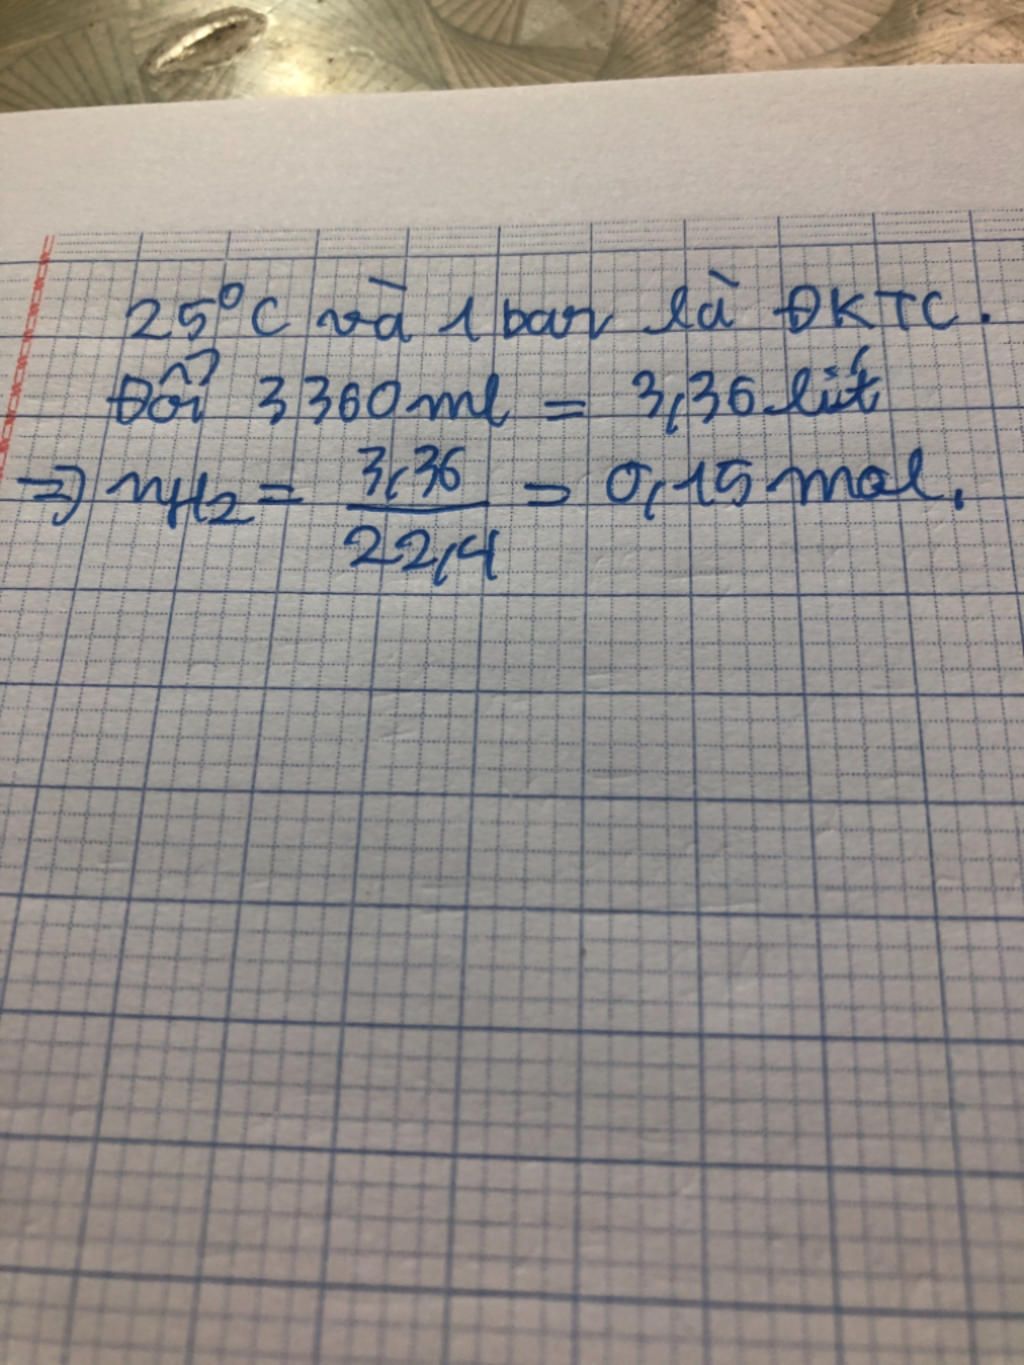 25°C và 1 bar là ĐKTC.
Đổi 3360ml = 3,36 lít
=> nH2 = 3,36 / 22,4 = 0,15 mol.